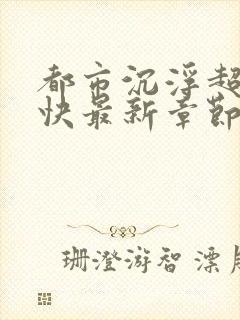 都市沉浮超
快最新章節
珊澄游智 漂